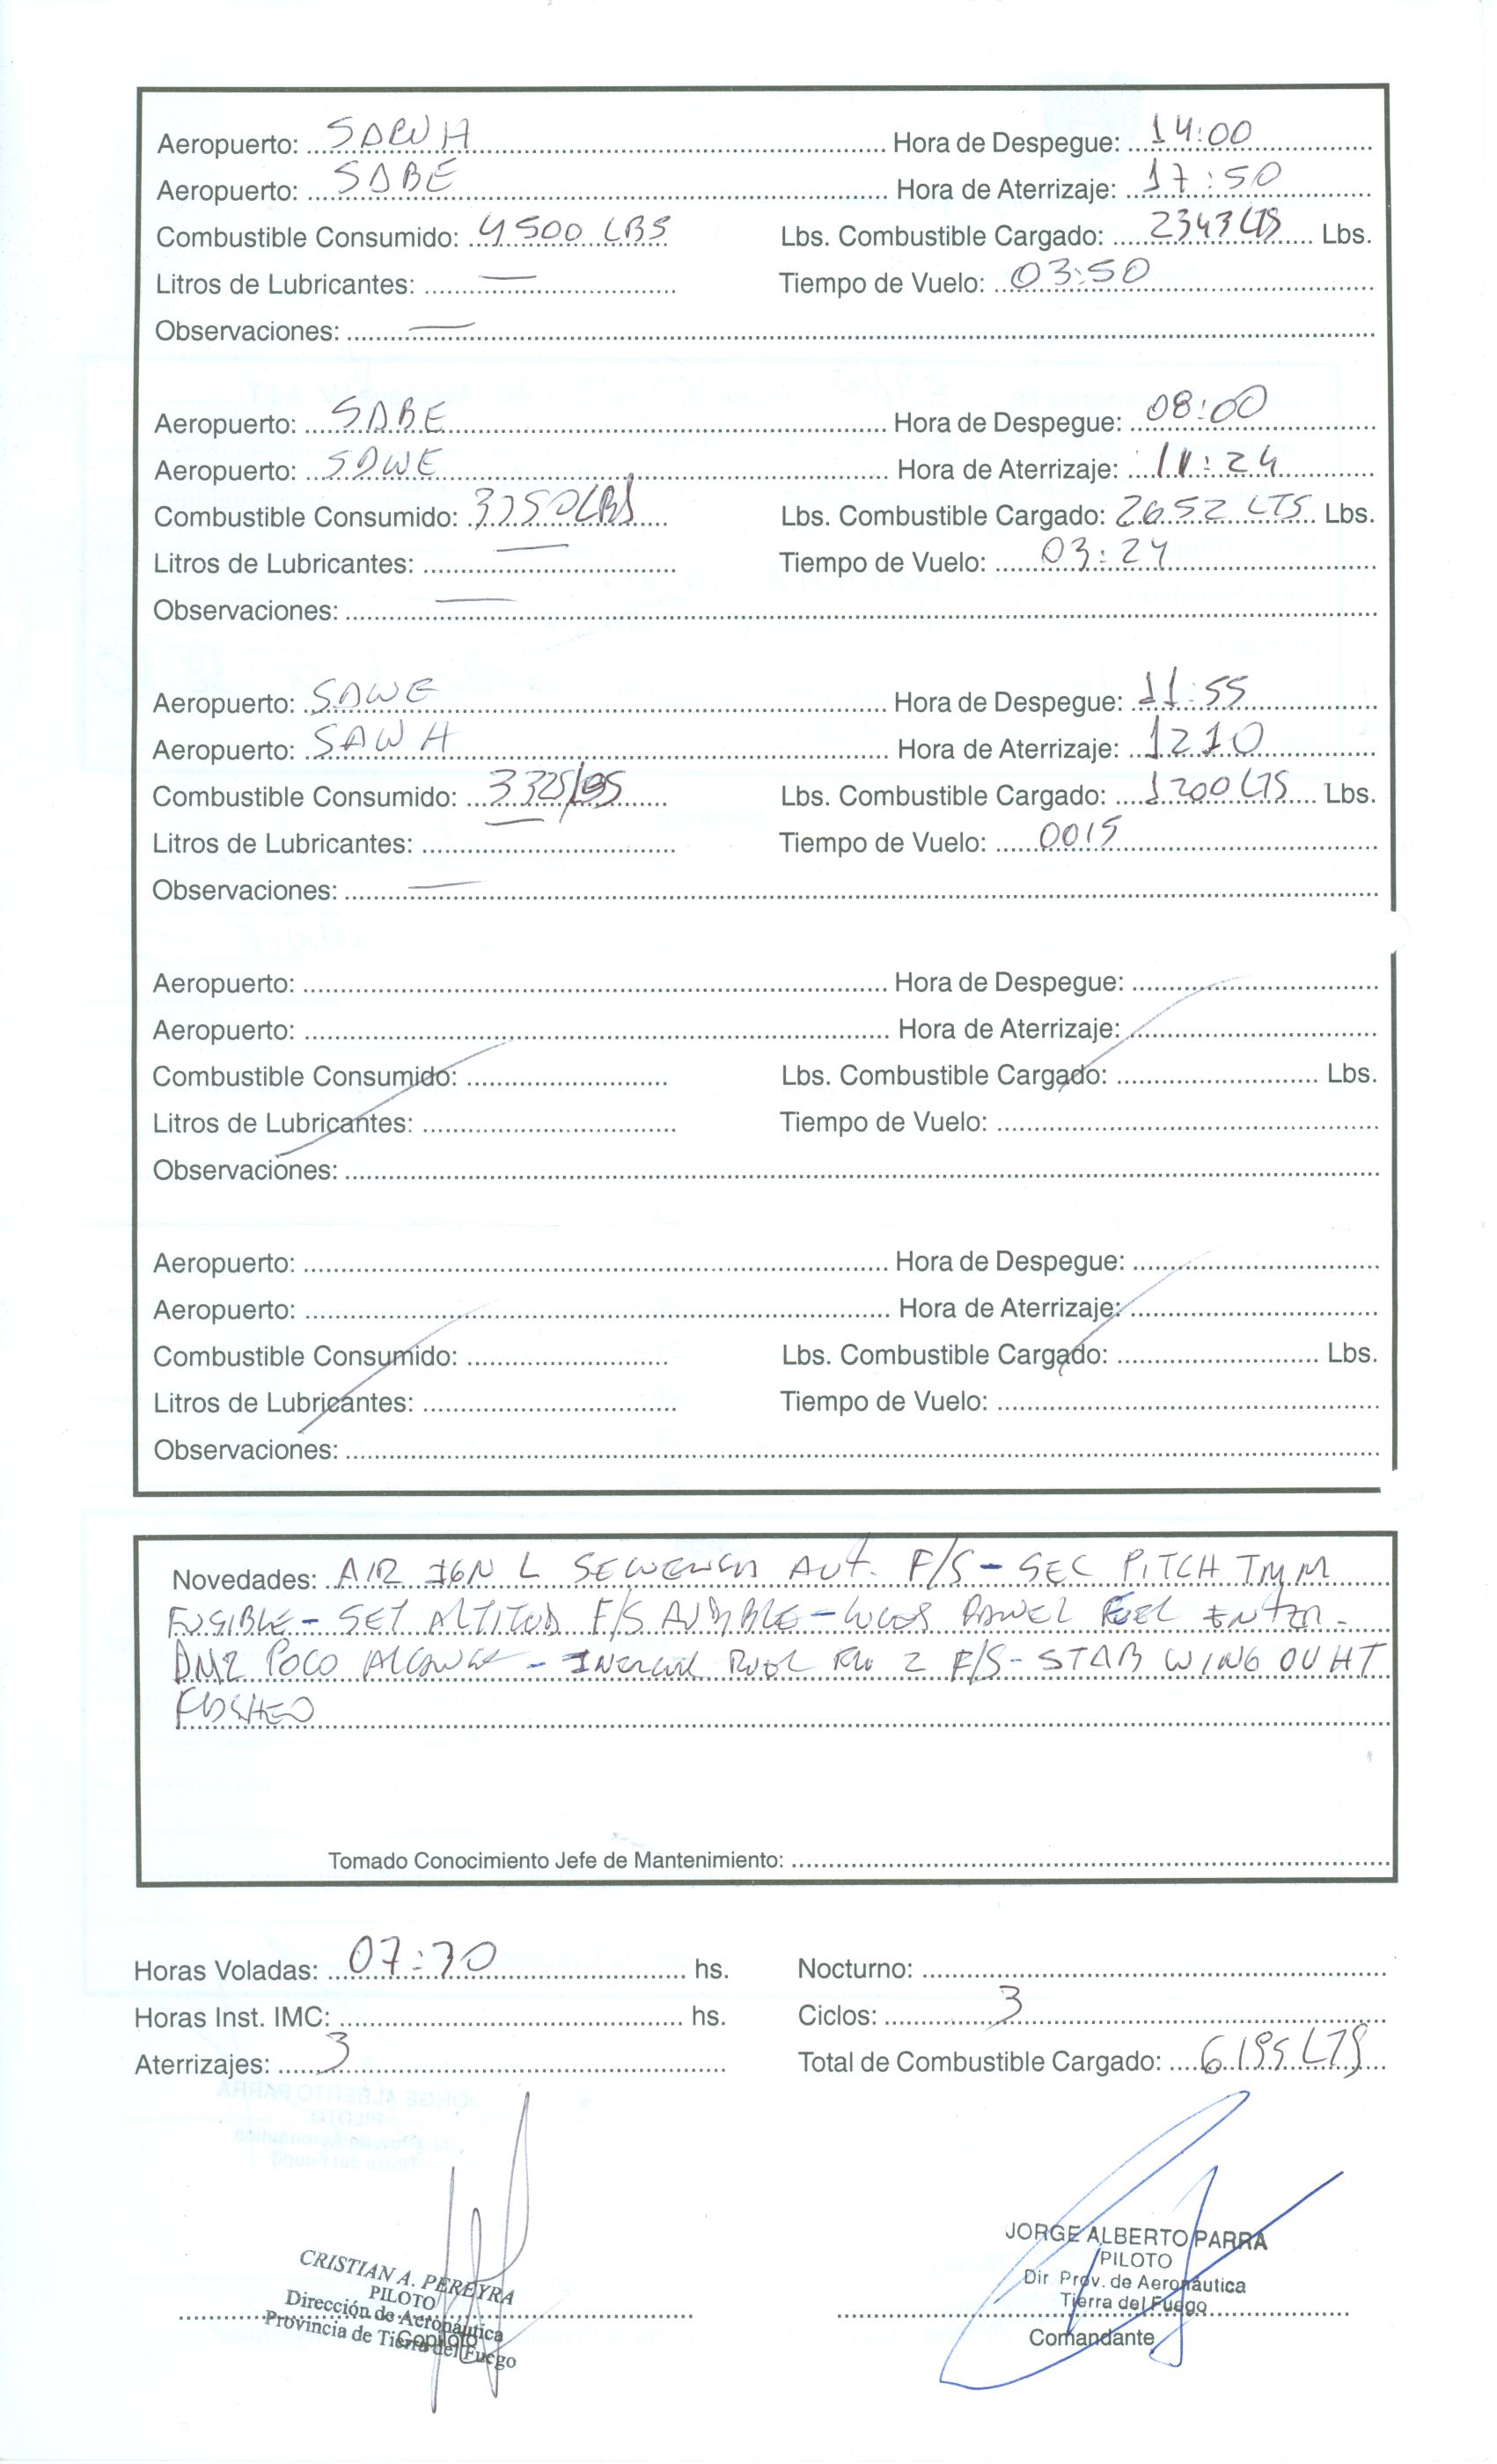 Aeropuerto: SAWH Hora de Despegue: 14:00
Aeropuerto: SABE Hora de Aterrizaje: 17:50
Combustible Consumido: 4500 LBS Lbs. Combustible Cargado: 2343 LTS Lbs.
Litros de Lubricantes: — Tiempo de Vuelo: 03:50
Observaciones: —
Aeropuerto: SABE Hora de Despegue: 08:00
Aeropuerto: SAWE Hora de Aterrizaje: 11:24
Combustible Consumido: LBS Lbs. Combustible Cargado: 2652 LTS Lbs.
Litros de Lubricantes: — Tiempo de Vuelo: 03:24
Observaciones: —
Aeropuerto: SAWE Hora de Despegue: 11:55
Aeropuerto: SAWH Hora de Aterrizaje: 1210
Combustible Consumido: Lbs. Combustible Cargado: 1200 LTS Lbs.
Litros de Lubricantes: — Tiempo de Vuelo: 0015
Observaciones: —
Aeropuerto: Hora de Despegue:
Aeropuerto: Hora de Aterrizaje:
Combustible Consumido: Lbs. Combustible Cargado: Lbs.
Litros de Lubricantes: Tiempo de Vuelo:
Observaciones:
Aeropuerto: Hora de Despegue:
Aeropuerto: Hora de Aterrizaje:
Combustible Consumido: Lbs. Combustible Cargado: Lbs.
Litros de Lubricantes: Tiempo de Vuelo:
Observaciones:
Novedades: AIR IGN L SECUENCIA AUT. F/S - SEC PITCH TRIM
FUSIBLE - SET ALTITUD F/S AUDIBLE - LUCES PANEL FUEL
POCO ALCANCE - FUEL 2 F/S - STAB WING OUHT
Tomado Conocimiento Jefe de Mantenimiento:
Horas Voladas: hs. Nocturno:
Horas Inst. IMC: hs. Ciclos: 3
Aterrizajes: 3 Total de Combustible Cargado: 6195 LTS
CRISTIAN A. PEREYRA
PILOTO
Dirección de Aeronáutica
Provincia de Tierra del Fuego
Copiloto
JORGE ALBERTO PARRA
PILOTO
Dir. Prov. de Aeronáutica
Tierra del Fuego
Comandante